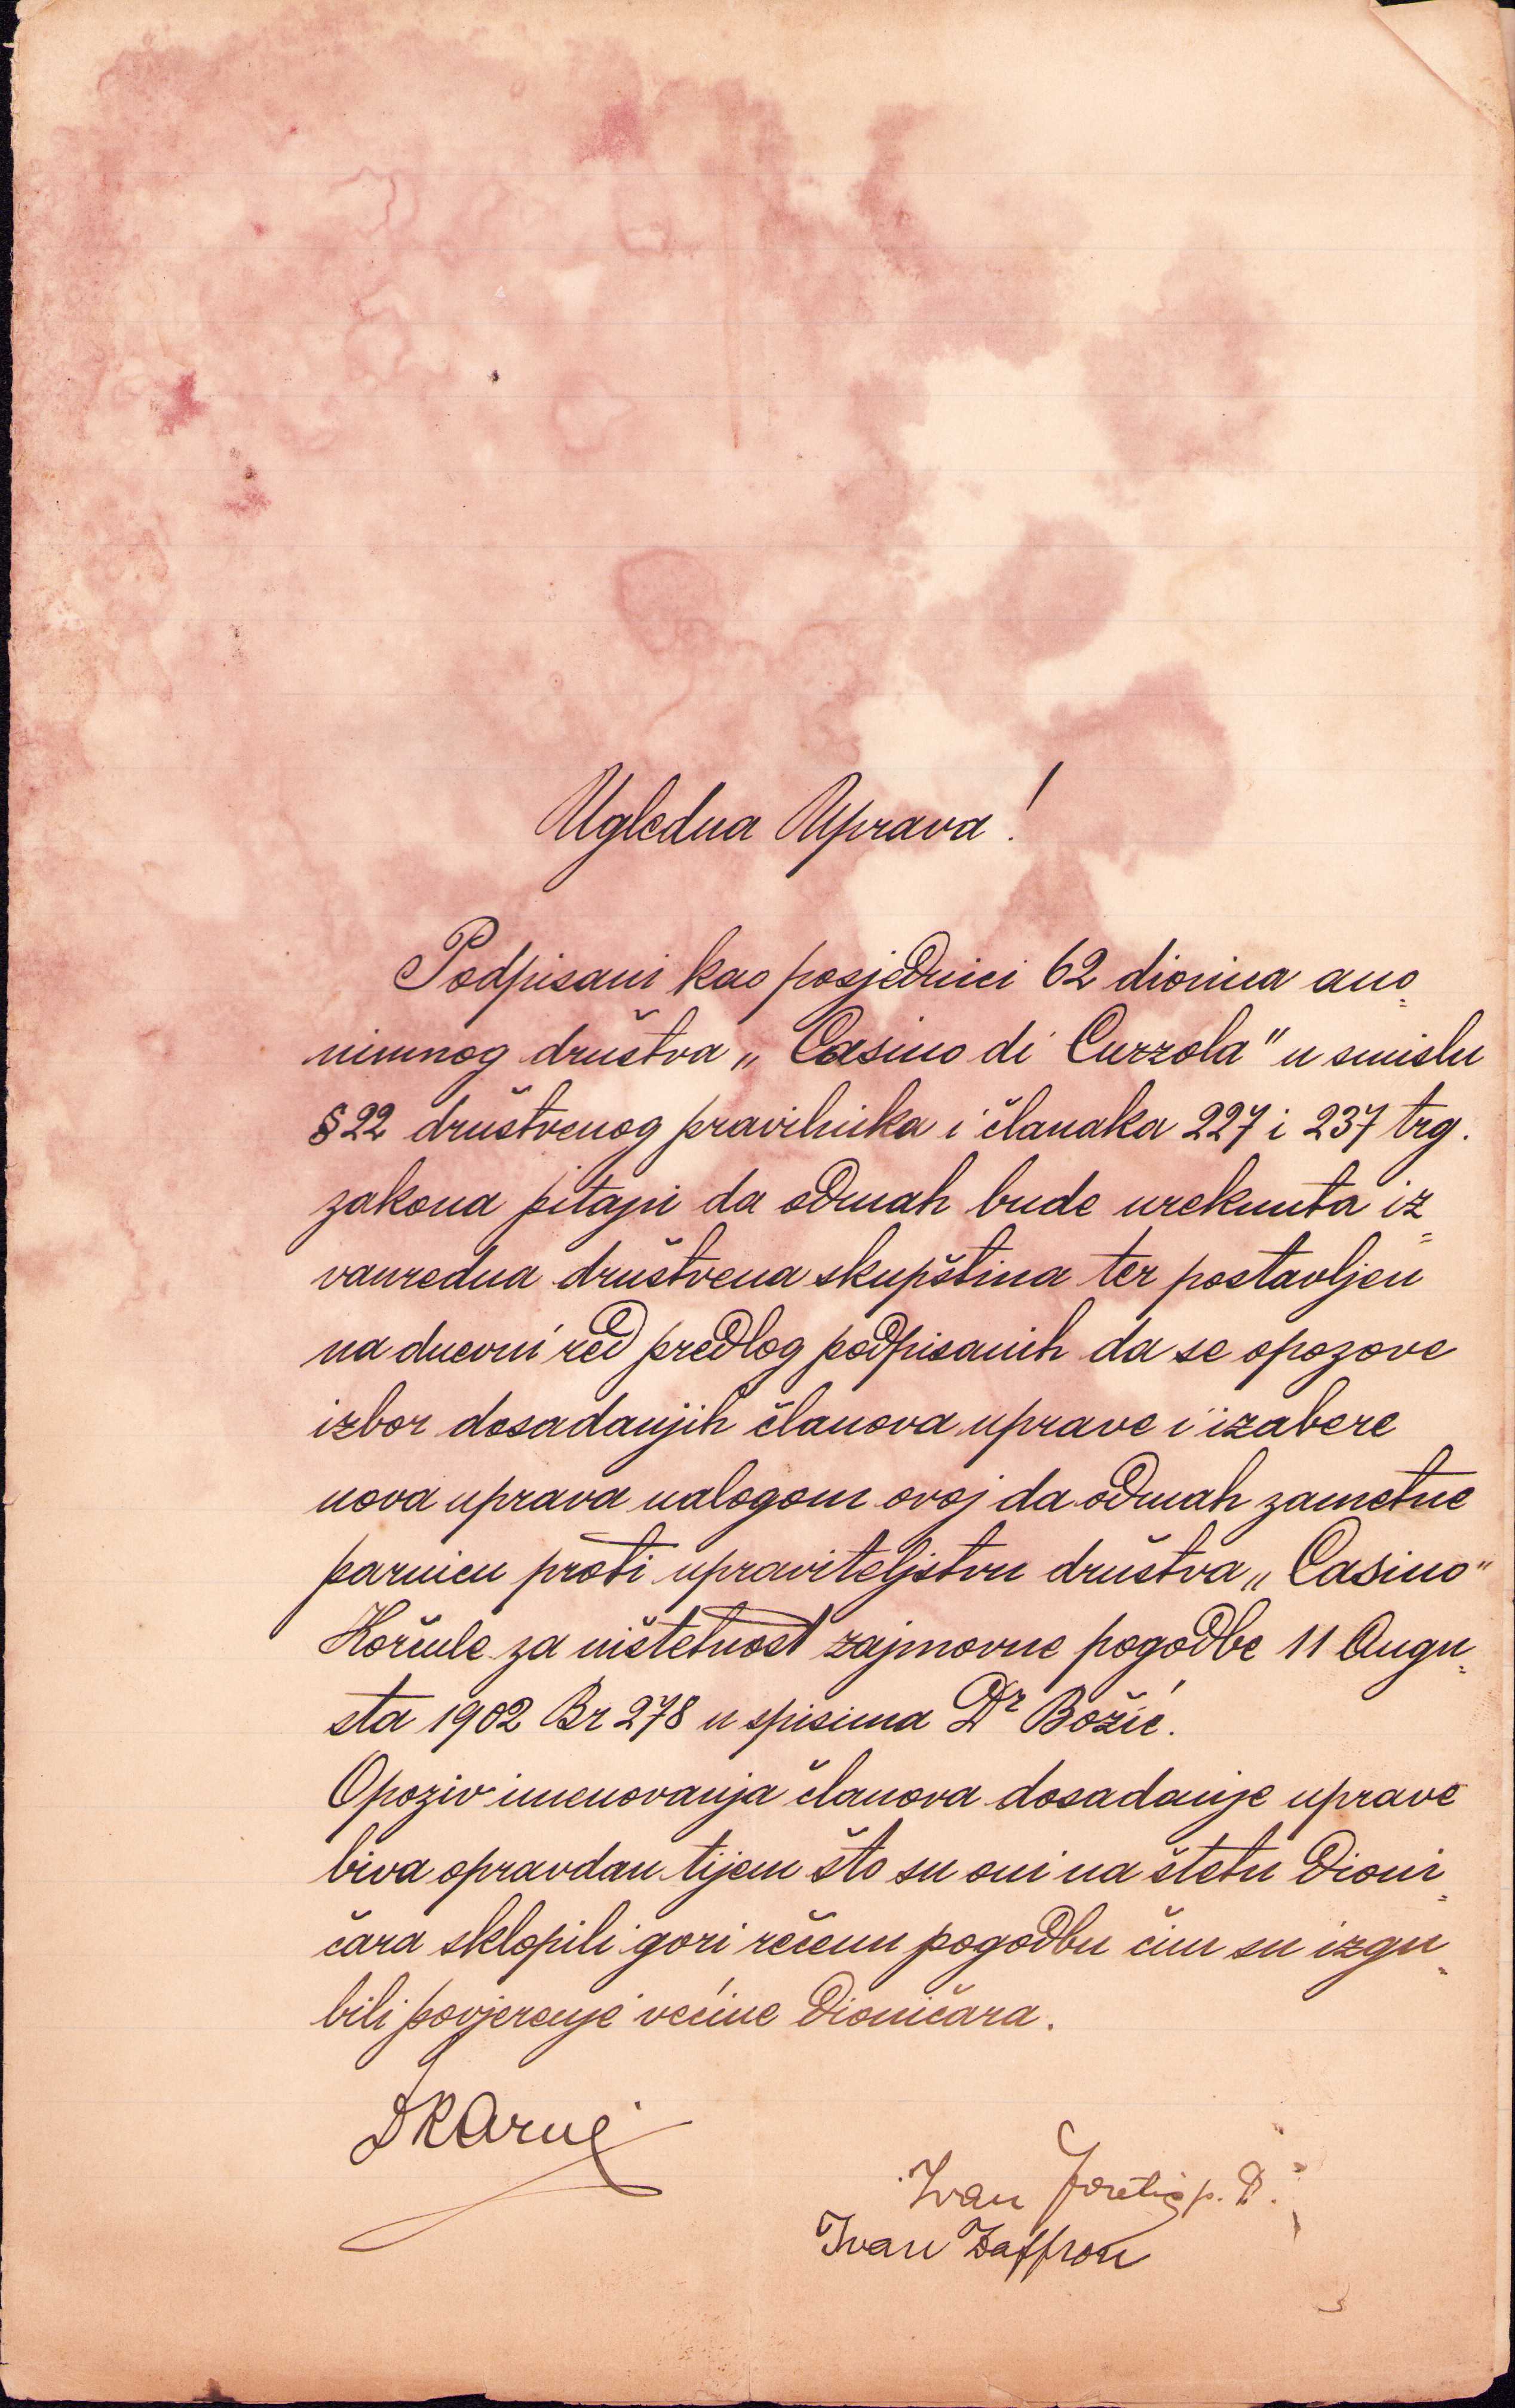 Ugledna Uprava!
Podpisani kao posjednici 62 dionica ano=
nimnog društva „Casino di Curzola" u smislu
§22 društvenog pravilnika i članaka 227 i 237 trg.
zakona pitaju da odmah bude urekнuta iz=
vanredna društvena skupština ter postavljen
na dnevni red predlog podpisanih da se opozove
izbor dosadanjih članova uprave i izabere
nova uprava nalogom ovoj da odmah zametne
parnicu proti upraviteljstvu društva „Casino"
Korčule za ništetnost zajmovne pogodbe 11 Augu=
sta 1902 Br 278 u spisima Dr Božić.
Opoziv imenovanja članova dosadanje uprave
biva opravdan tijem što su oni na štetu dioni=
čara sklopili gori rečenu pogodbu čim su izgu=
bili povjerenje većine dioničara.
Ivan Foretić p. D.
Ivan Zaffron